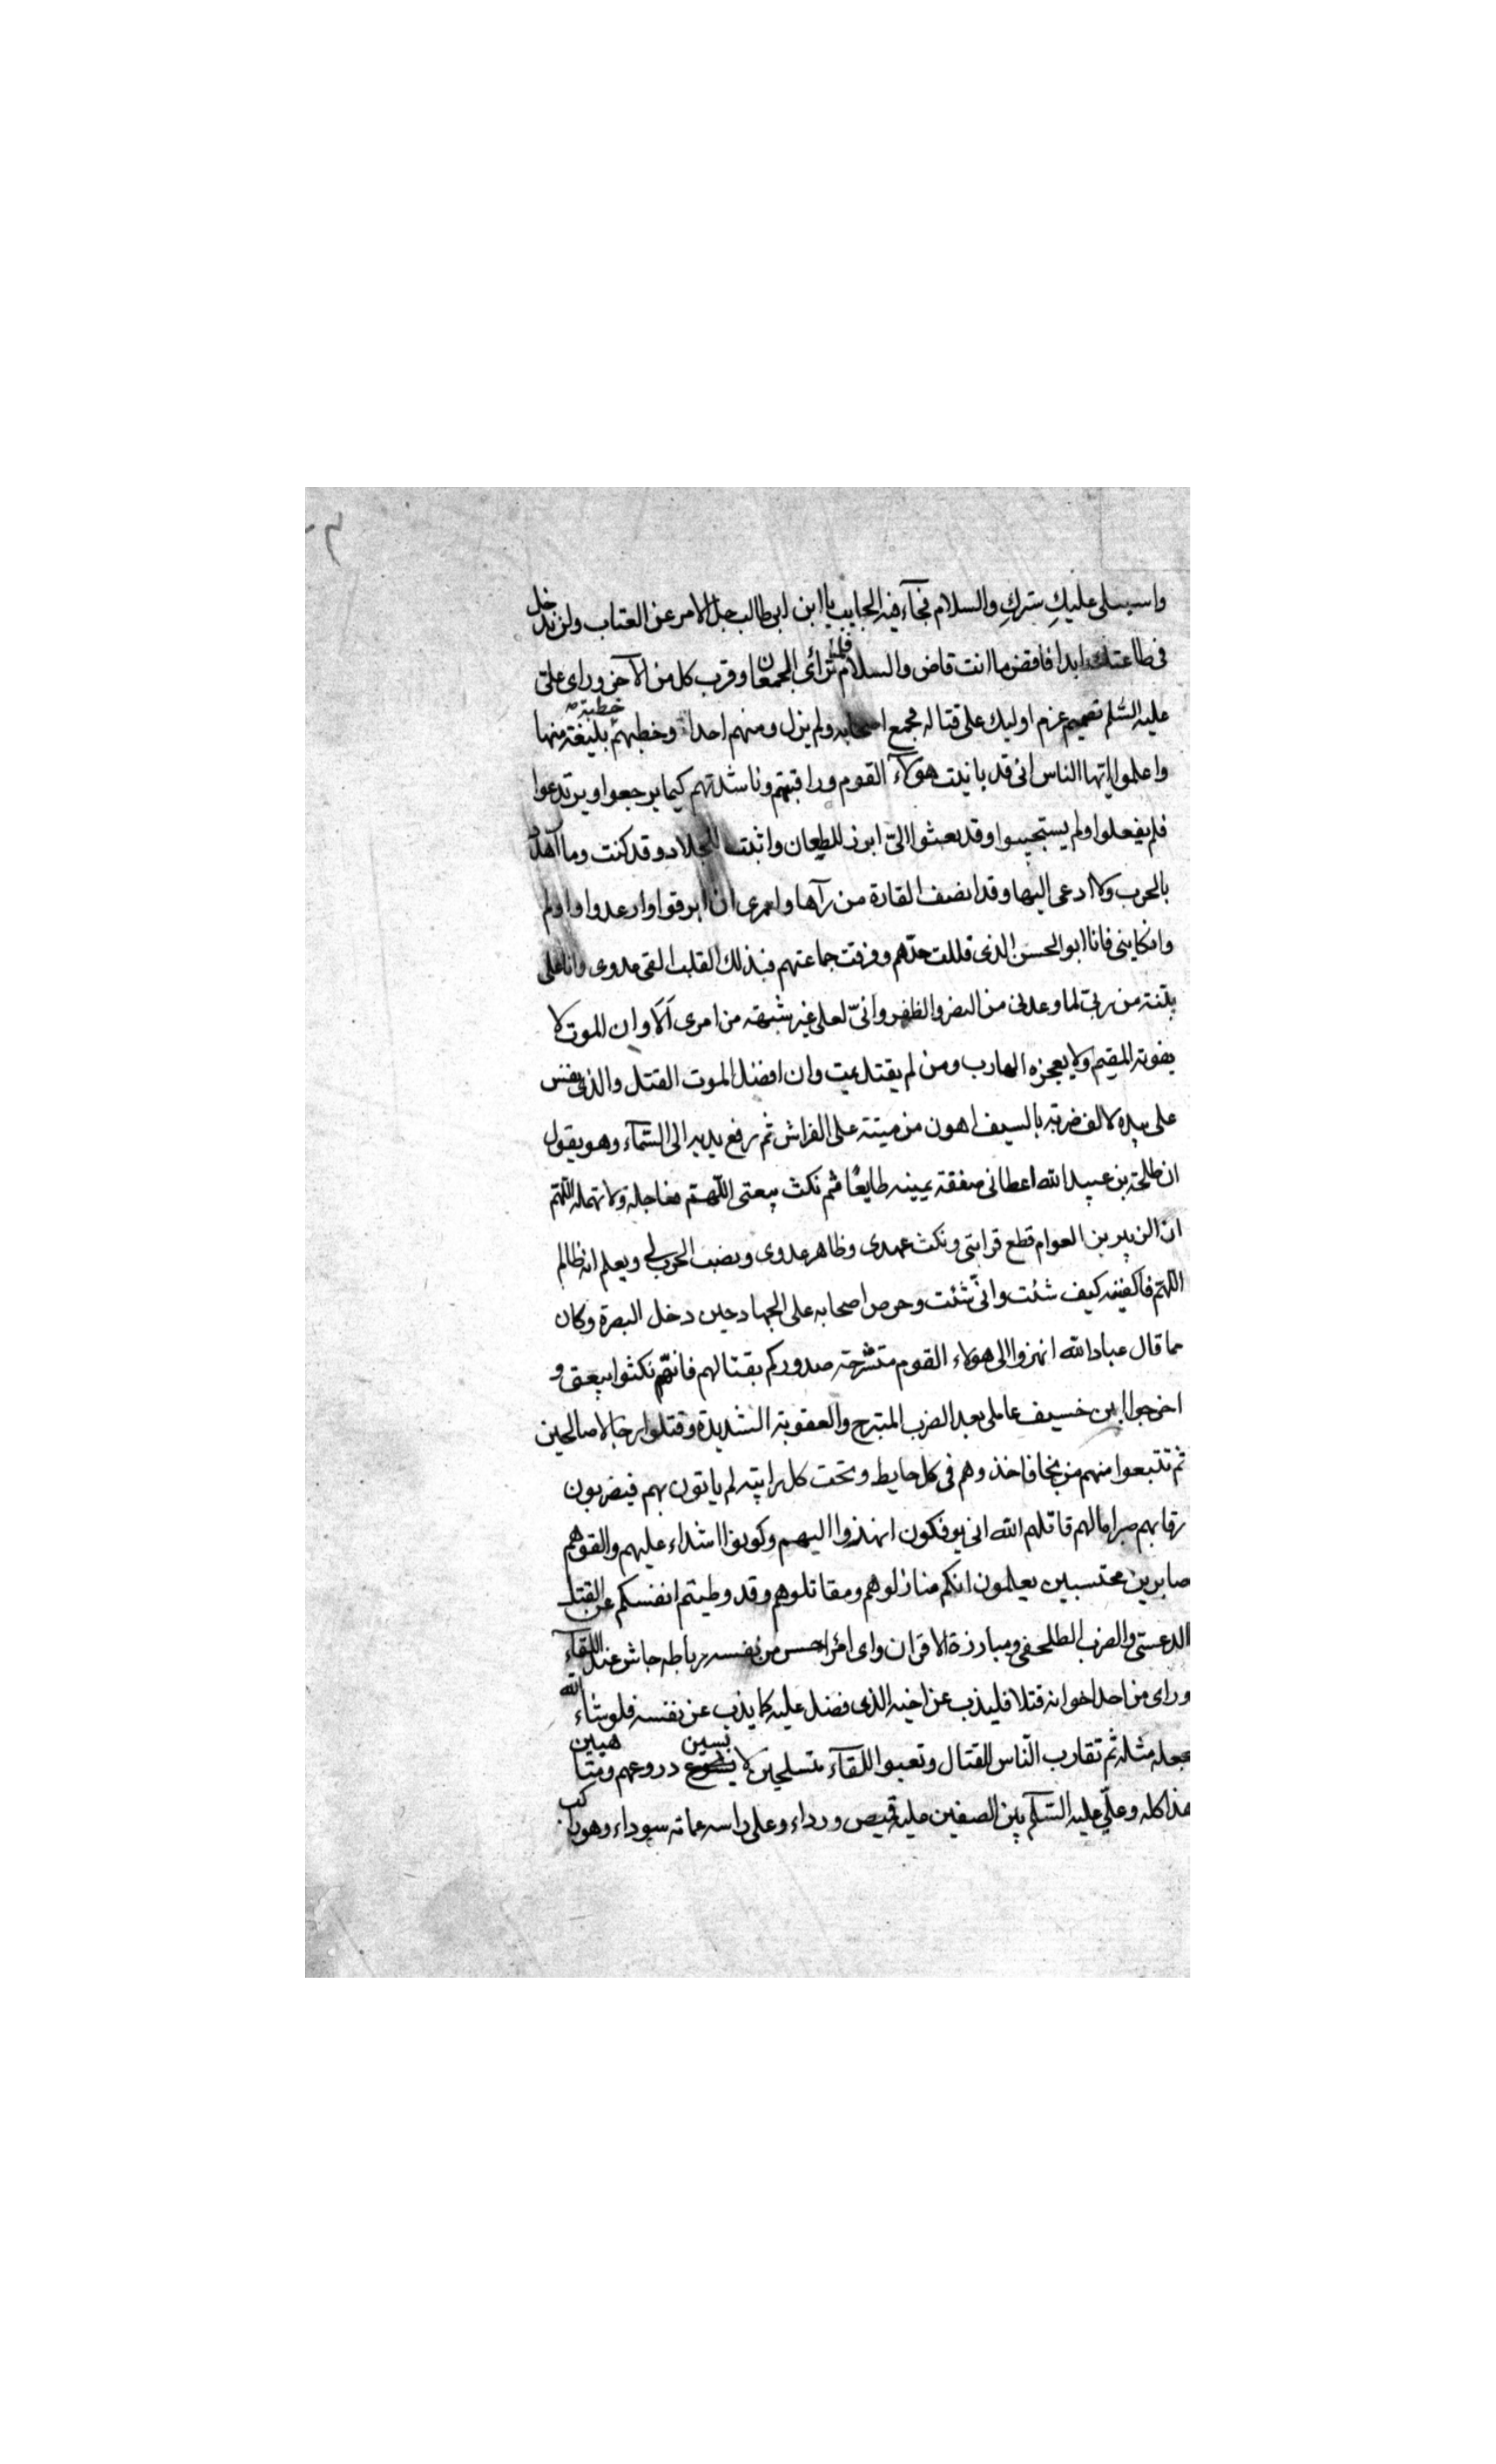 واسبلى عليك سترك والسلام فجآء فيه الجايب يا ابن ابى طالب جل الامر عن العتاب ولن ندخل
فى طاعتك ابدا فاقض ما انت قاض والسلام فلما ترأى الجمعان وقرب كل من الآخر وراى على
عليه السلم تصميم عزم اوليك على قتاله فجمع اصحابه ولم يزل ومنهم احدا وخطبهم خطبة بليغة منها
واعلموا ايها الناس انى قد بانيت هولآء القوم وراقبتهم وناشدتهم كيما يرجعوا ويرتدعوا
فلم يفعلوا ولم يستجيبوا وقد بعثوا الىّ ابرز للطعان واثبت للجلاد وقد كنت وما اهدد
بالحرب ولا ادعى اليها وقد انصف القارة من رآها ولعمرى ان ابرقوا وارعدوا واولم
وانكاينى فانا ابو الحسن الذى فللت حدهم وفرقت جماعتهم فبذلك القلب القى عدوى وانا على
بينة من ربى لما وعدنى من النصر والظفر وانىّ لعلى غير شبهة من امرى ألا وان الموت لا
يفوته المقيم ولا يعجزه الهارب ومن لم يقتل يمت وان افضل الموت القتل والذى نفس
على بيده لالف ضربة بالسيف اهون من ميتة على الفراش ثم رفع يديه الى السّمآء وهو يقول
ان طلحة بن عبيد الله اعطانى صفقة يمينه طايعًا ثم نكث بيعتى اللهم فعاجله ولا تمهله اللّهمّ
ان الزبير بن العوام قطع قرابتى ونكث عهدى وظاهر عدوى ونصب الحرب لى ويعلم انه ظالم
اللهمّ فاكفينه كيف شئت وانّى شئت وحرص اصحابه على الجهاد حين دخل البصرة وكان
مما قال عباد الله انهزوا الى هولاء القوم منشرحة صدوركم بقتالهم فانهّم نكثوا بيعتى و
اخرجوا ابن حنيف عاملى بعد الضرب المبترح والعقوبة الشديدة وقتلوا رجالا صالحين
ثم تتبعوا منهم من نجا فاخذوهم فى كل حايط وتحت كل رابية لم ياتون بهم فيضربون
رقابهم صبرا مالهم قاتلهم الله انى يوفكون انهذوا اليهم وكونوا اشداء عليهم والقوهم
صابرين محتسبين يعلمون انكم منازلوهم ومقاتلوهم وقد وطيتم انفسكم عن القتل
الدعستى والضرب الطلحفى ومبارزة الاقران واى امرا احس من نفسه رباطه جاش عند اللقآء
وراى من احد اخوانه قتلا فليذب عن اخيه الذى فضل عليه كما يذب عن نفسه فلو شاء الله
لجعله مثله ثم تقارب الناس للقتال وتعبوا اللقآء متسلحين لابسين دروعهم ومتاهبين
هذا كله وعلىّ عليه السّلم بين الصفين عليه قميص ورداء وعلى راسه عمامة سوداء وهو راكب